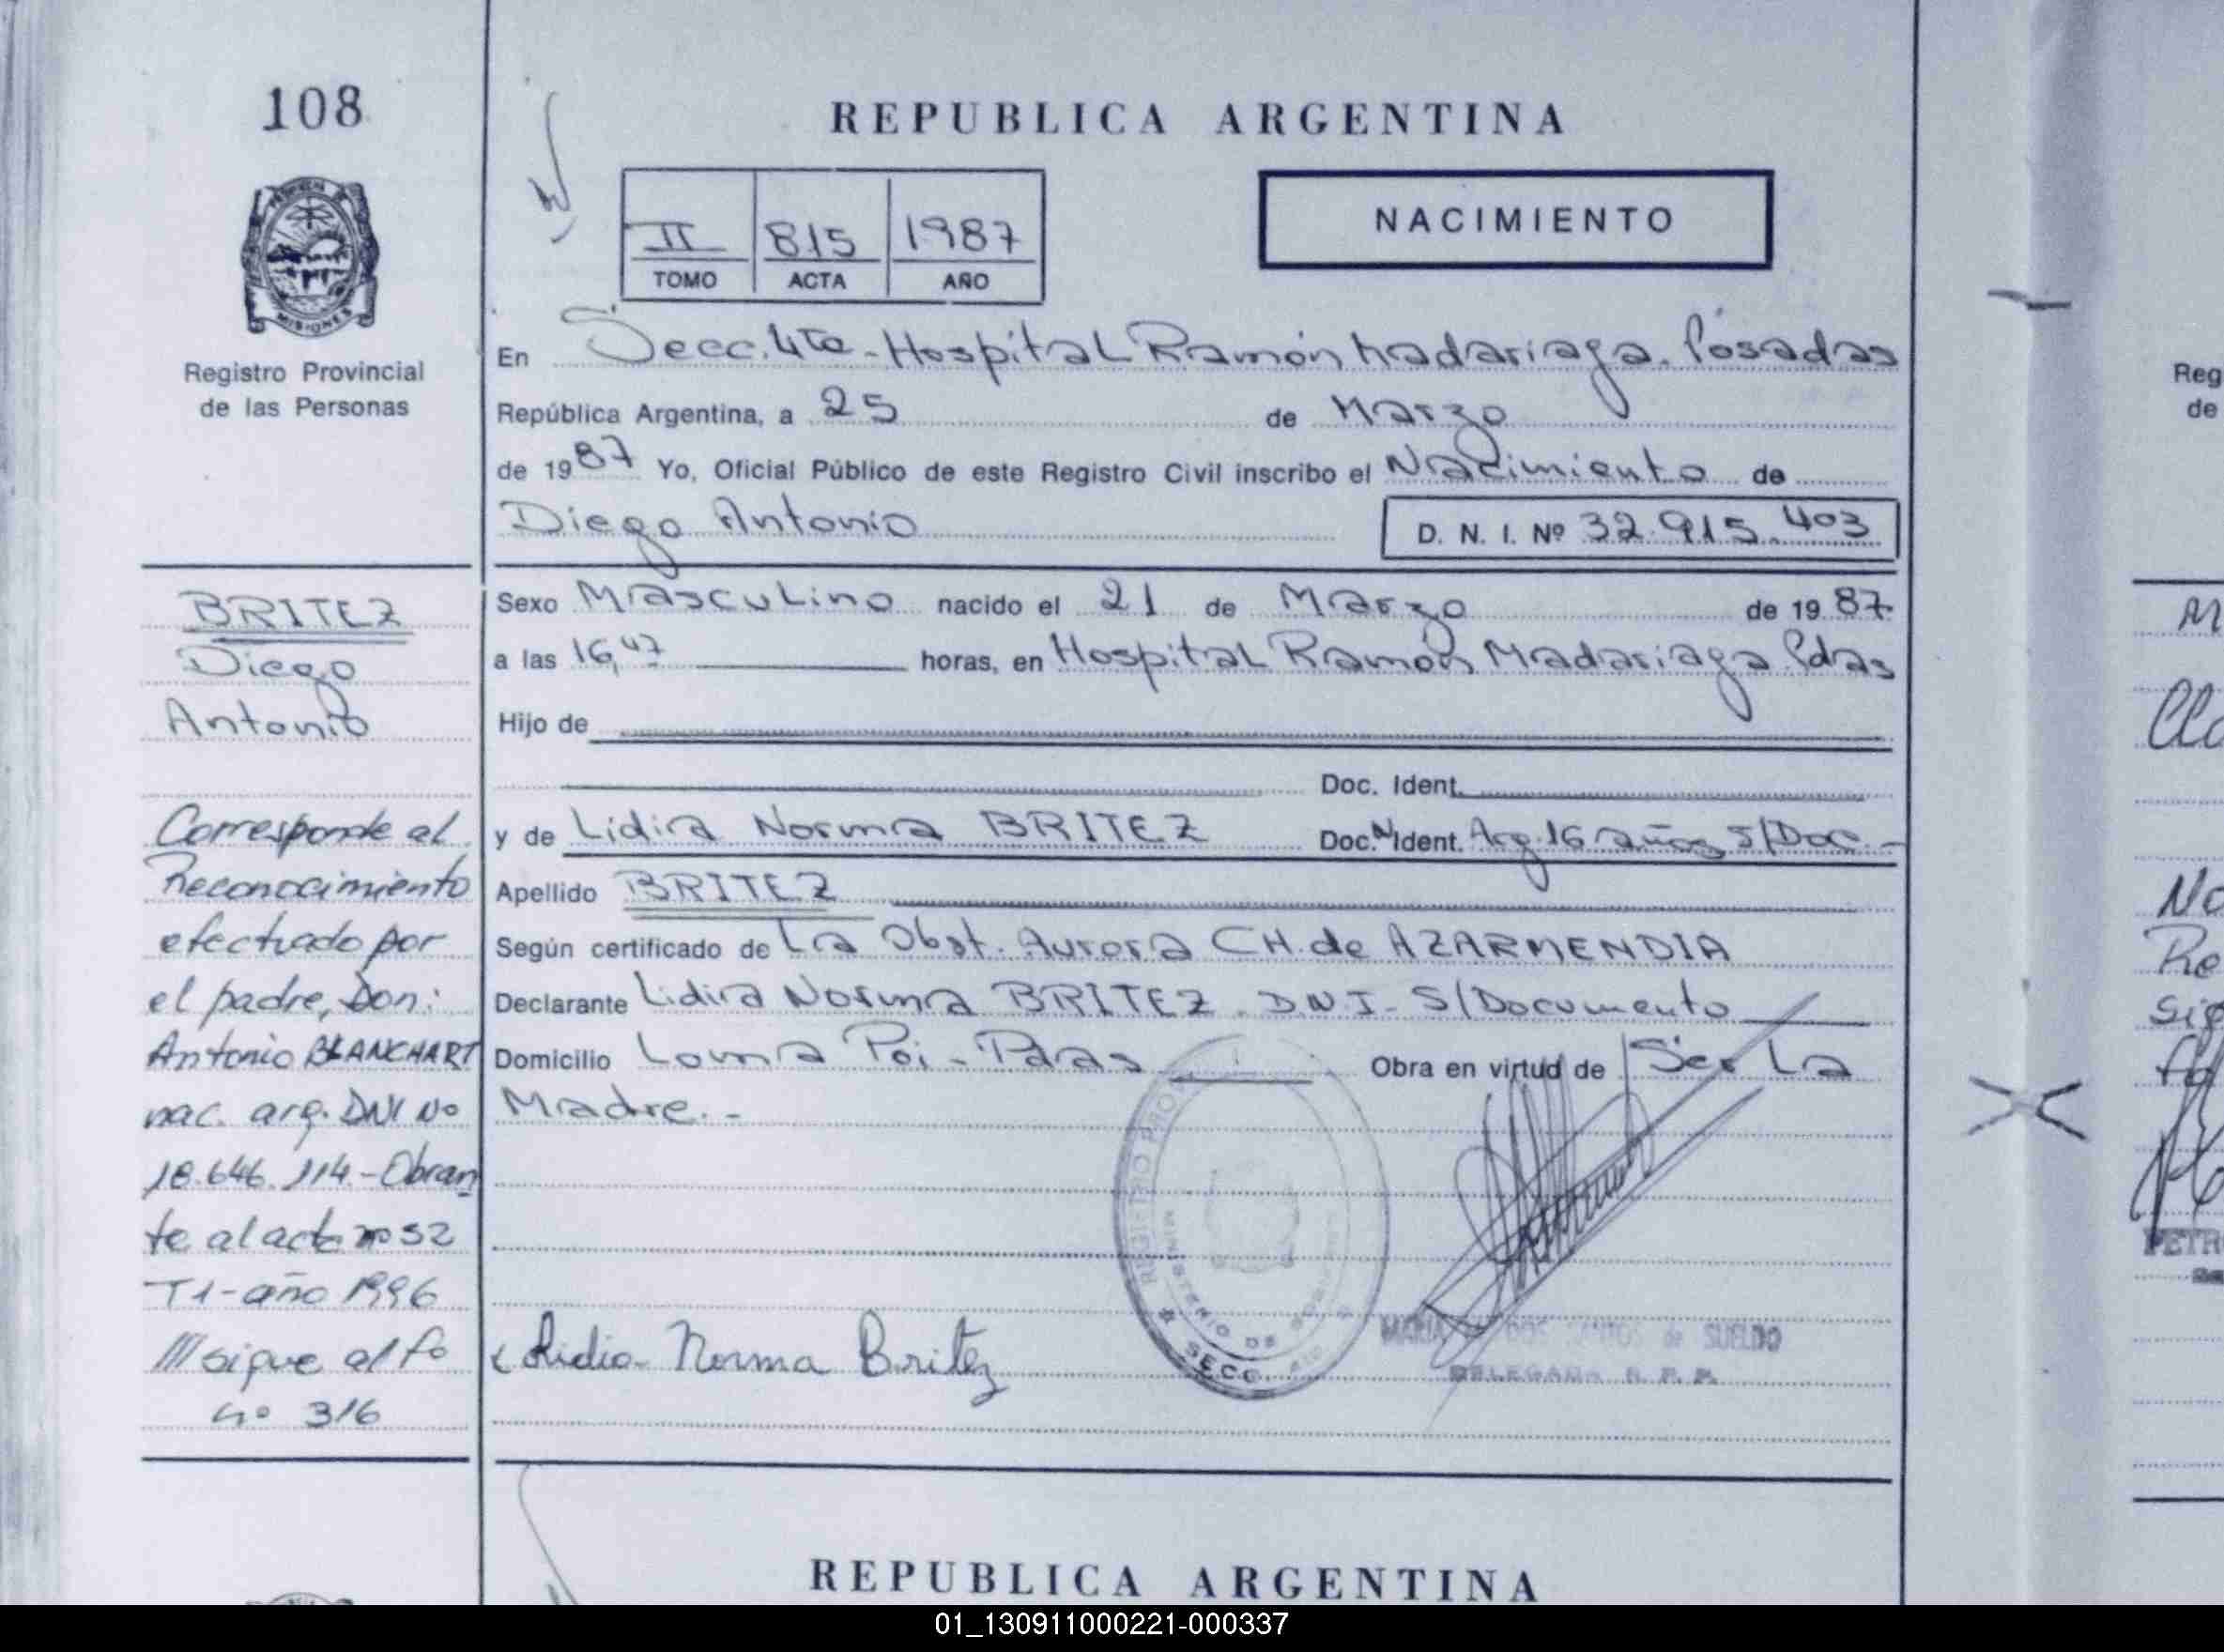 108
MISIONES
Registro Provincial
de las Personas
REPUBLICA ARGENTINA
II 815 1987
TOMO ACTA AÑO
NACIMIENTO
En Secc. 4ta - Hospital Ramón Madariaga. Posadas
República Argentina, a 25 de Marzo
de 1987 Yo, Oficial Público de este Registro Civil inscribo el Nacimiento de
Diego Antonio
D. N. I. Nº 32.915.403
Sexo Masculino nacido el 21 de Marzo de 1987
a las 16,47 horas, en Hospital Ramón Madariaga Pdas
Hijo de
Doc. Ident.
y de Lidia Norma BRITEZ Doc. Ident. Arg. 16 años S/Doc.-
Apellido BRITEZ
Según certificado de La Obst. Aurora CH. de AZARMENDIA
Declarante Lidia Norma BRITEZ. D.N.I. S/Documento
Domicilio Loma Poi - Pdas Obra en virtud de Ser La
Madre.-
Lidia Norma Britez
SUELDO
DELEGADA R. P. P.
REGISTRO
MINISTERIO DE
SECC.
BRITEZ
Diego
Antonio
Corresponde al
Reconocimiento
efectuado por
el padre, Don:
Antonio BLANCHART
nac. arg. DNI No
18.646.114.-Obran
te al acta nº 52
T1-año 1996
/// sigue al fº
nº 316
REPUBLICA ARGENTINA
Reg
de
M
Cla
No
Re
sig
PETR
01_130911000221-000337